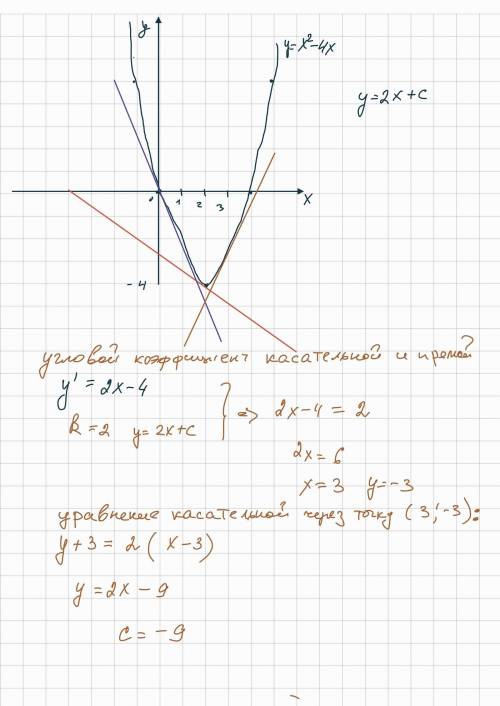 y
y=x²-4x
y=2x+c
0 1 2 3 x
-4
угловой коэффициент касательной и прямой
y' = 2x-4
k=2 y=2x+c
=> 2x-4=2
2x=6
x=3 y=-3
уравнение касательной через точку (3;-3):
y+3=2(x-3)
y=2x-9
c=-9